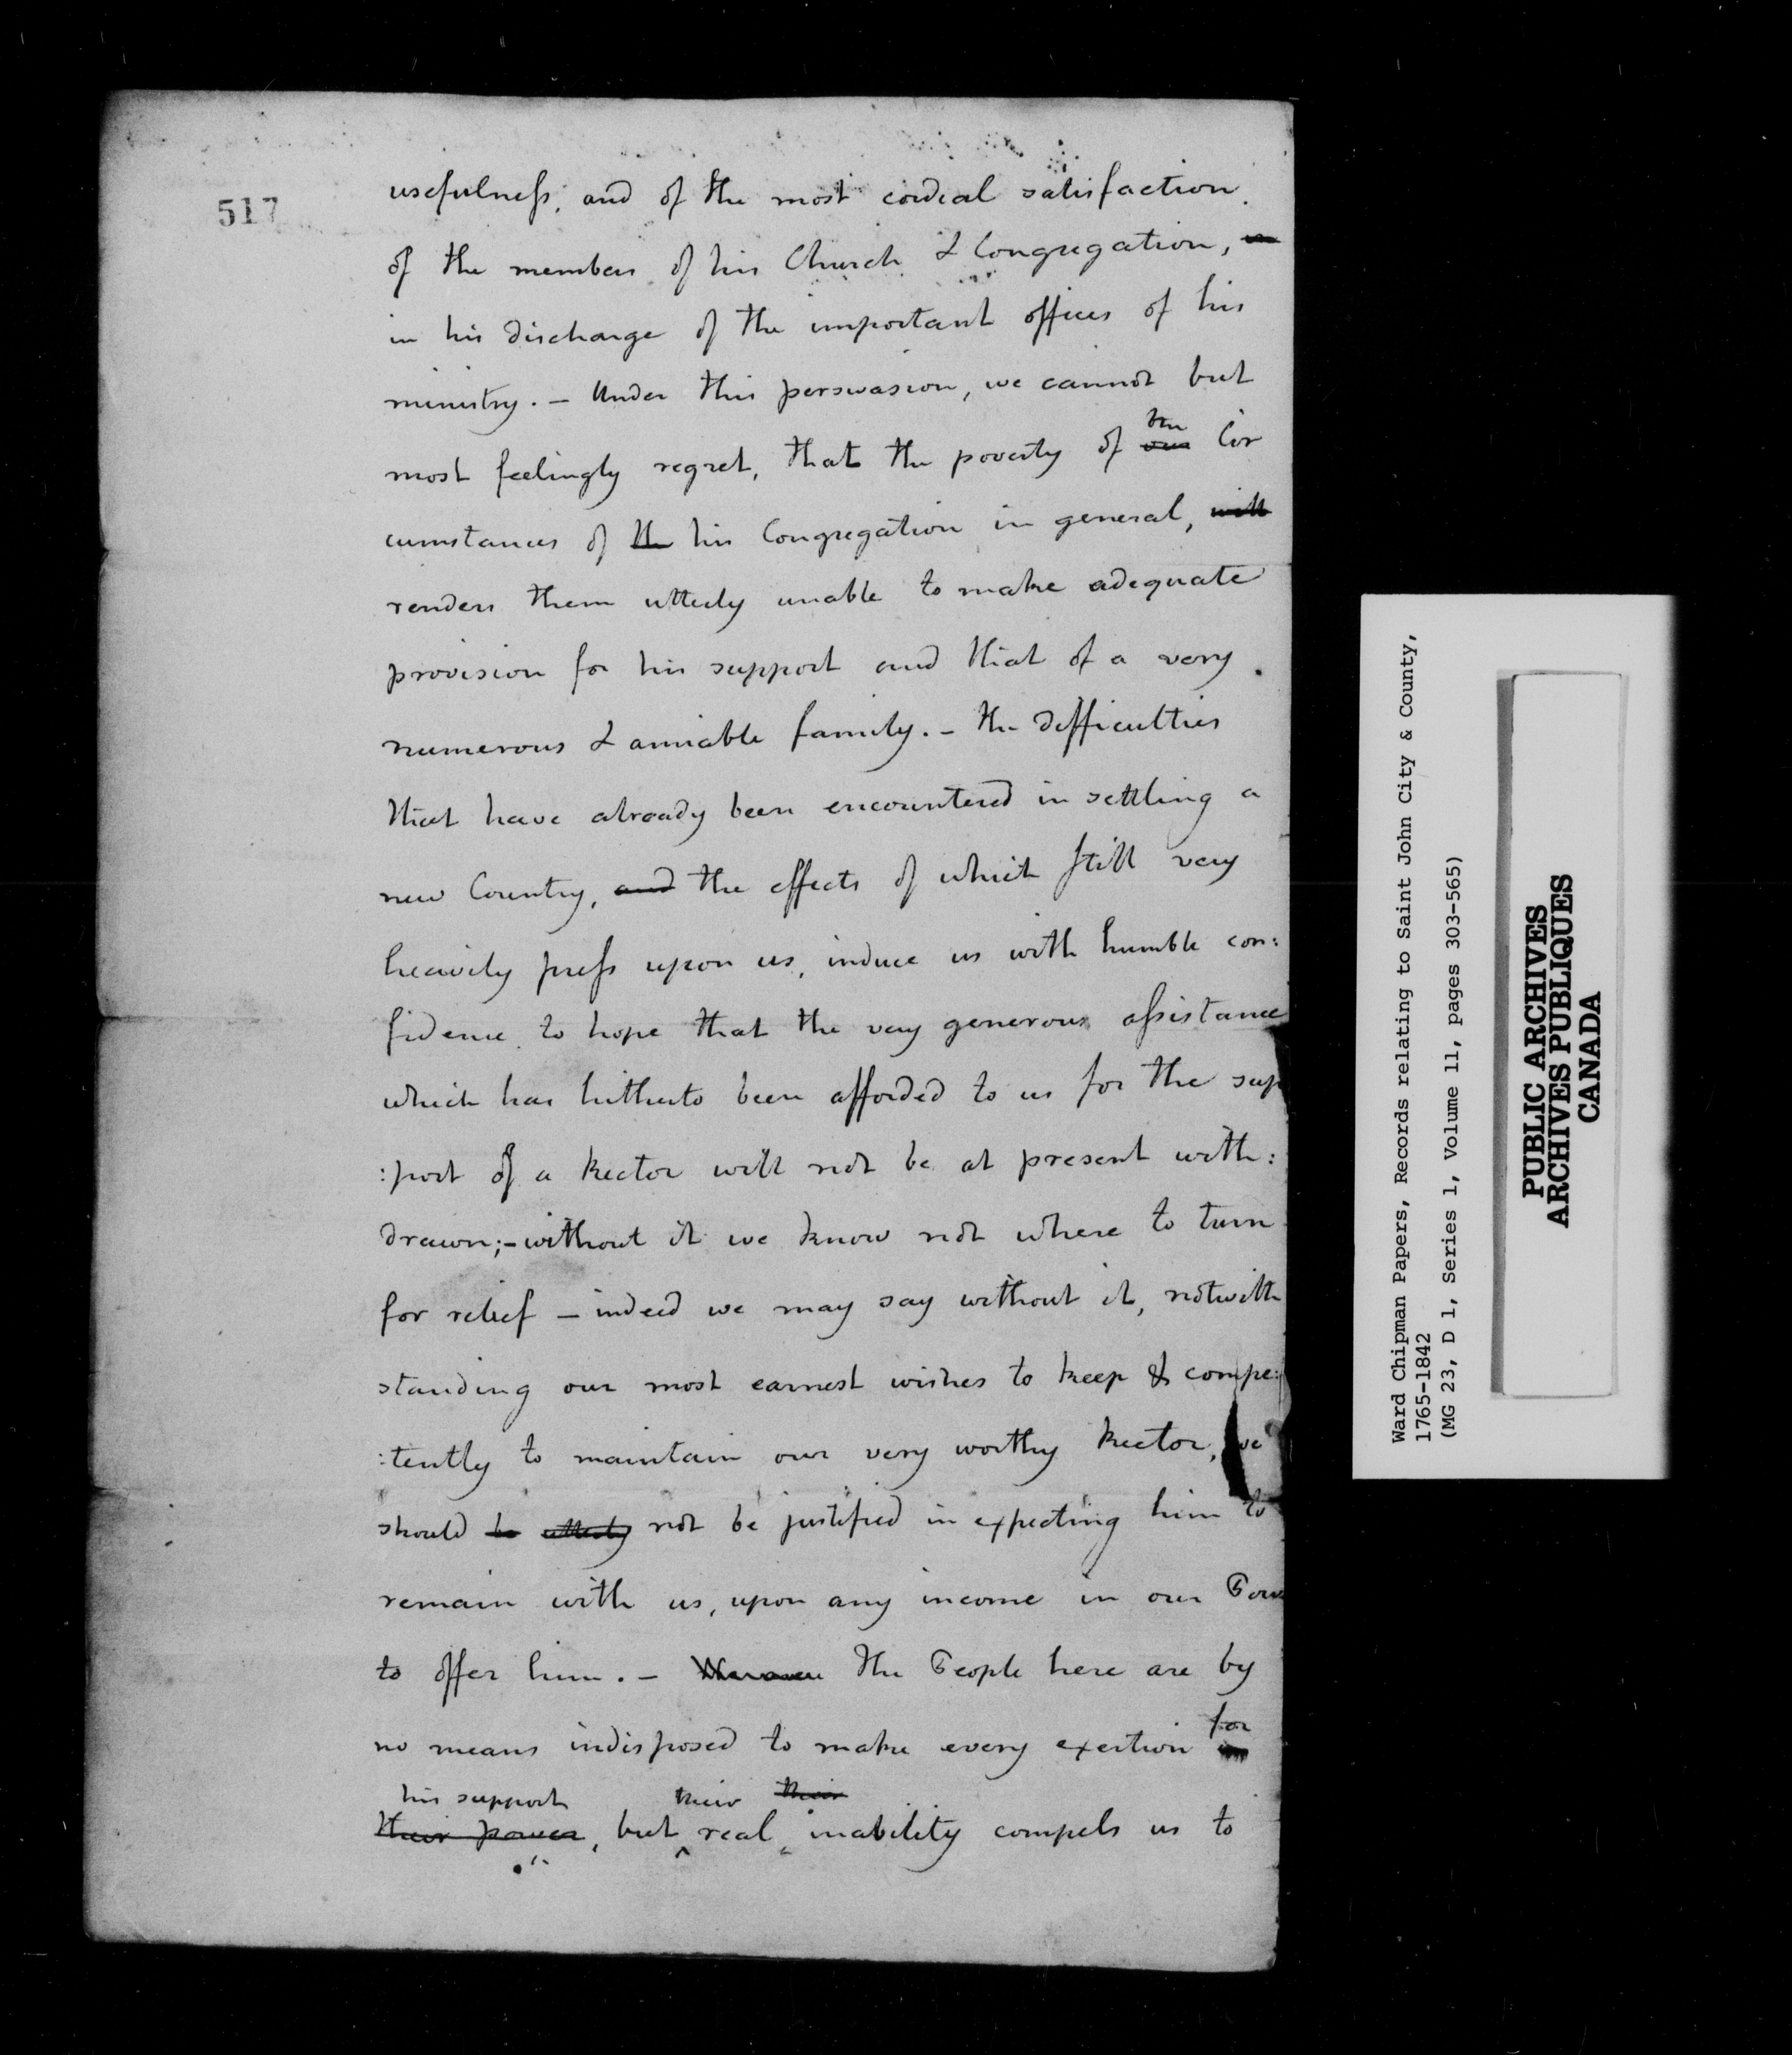 517
usefulness, and of the most cordial satisfaction.
of the members of his Church & Congregation, in
in his discharge of the important offices of his
ministry. - Under this perswasion, we cannot but
the
most feelingly regret, that the poverty of our Cir
cumstances of the his Congregation in general, will
renders them utterly unable to make adequate
provision for his support and that of a very
numerous & amiable family. - The difficulties
that have already been encountered in settling a
new Country, and the effects of which still very
heavily press upon us, induce us with humble con:
fidence to hope that the very generous assistance
which has hitherto been afforded to us for the sup
:port of a Rector will not be at present with:
drawn; - without it we know not where to turn
for relief - indeed we may say without it, notwith
standing our most earnest wishes to keep & compe:
:tently to maintain our very worthy Rector, we
should be utterly not be justified in expecting him to
remain with us, upon any income in our Pow
to offer him. - The People here are by
for
no means indisposed to make every exertion in
his support their their
their power, but real inability compels us to
Ward Chipman Papers, Records relating to Saint John City & County,
1765-1842
(MG 23, D 1, Series 1, Volume 11, pages 303-565)
PUBLIC ARCHIVES
ARCHIVES PUBLIQUES
CANADA